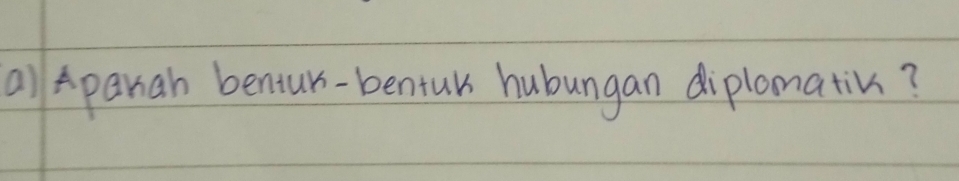 a) Apakah bentuk-bentuk hubungan diplomatik?